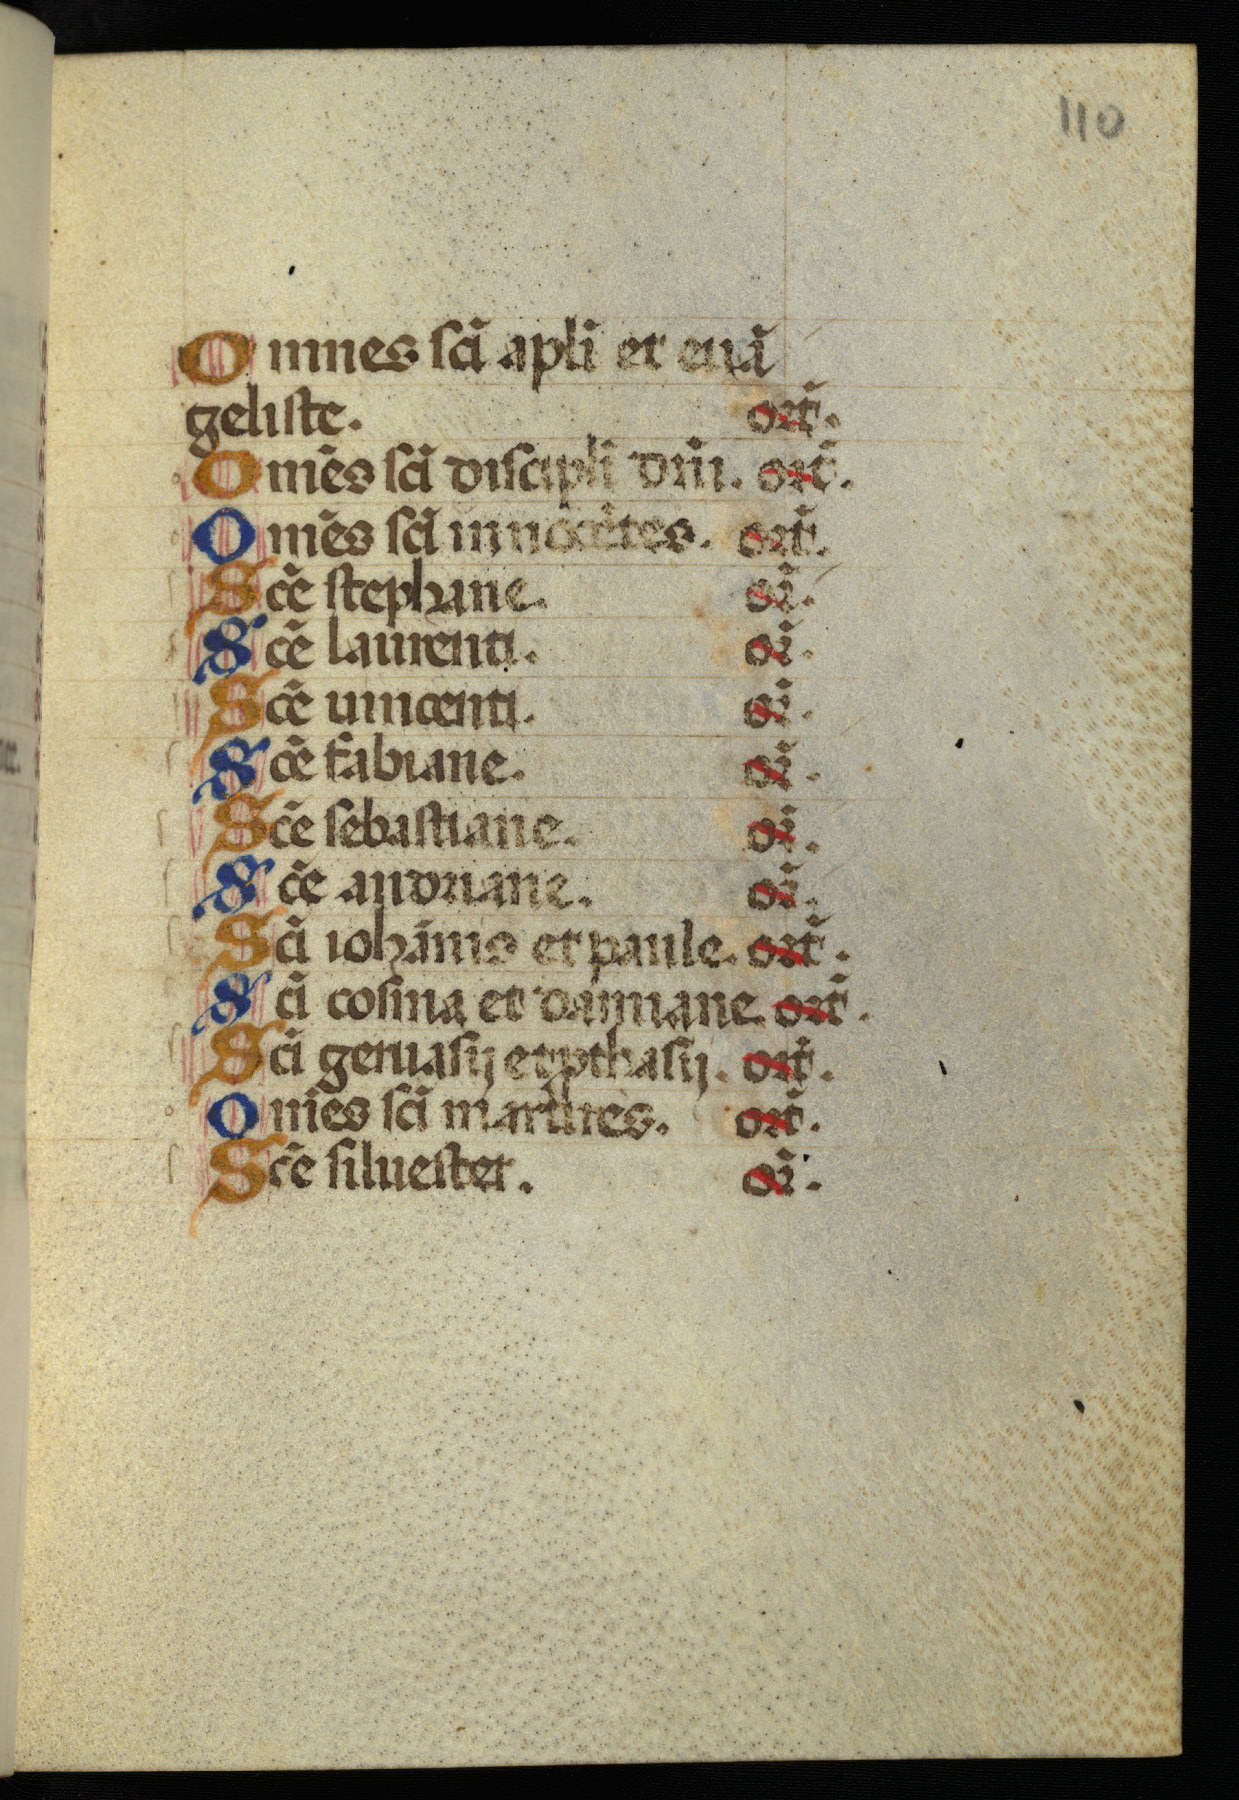 110
Omnes sci̅ apl̅i et eua̅
geliste. ort̅.
Om̅es sci̅ discipl̅i dn̅i. ort̅.
Om̅es sci̅ innoce̅tes. ort̅.
Sce̅ stephane. or̅.
Sce̅ laurenti. or̅.
Sce̅ uincenti. or̅.
Sce̅ fabiane. or̅.
Sce̅ sebastiane. or̅.
Sce̅ andriane. or̅.
Sci̅ ioha̅nis et paule. ort̅.
Sci̅ cosma et damiane. ort̅.
Sci̅ geruasij et pthasij. ort̅.
Om̅es sci̅ martires. ort̅.
Sce̅ siluester. or̅.